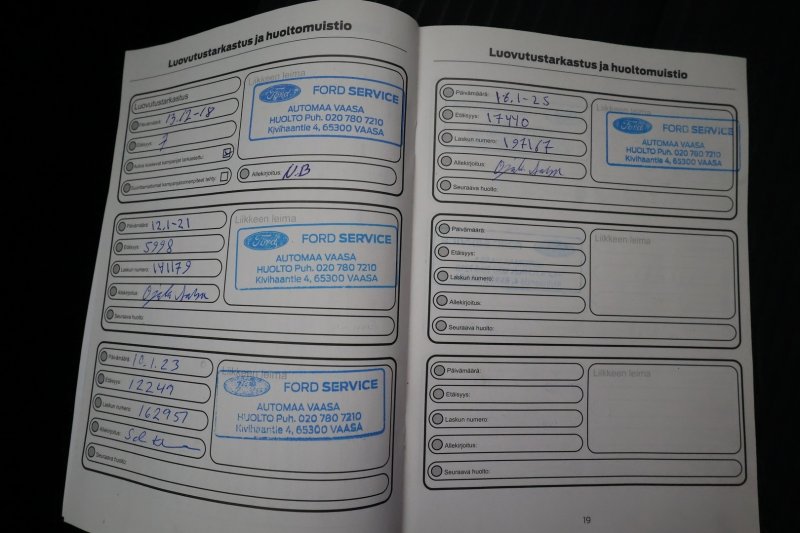 Luovutustarkastus ja huoltomuistio
Luovutustarkastus
Päivämäärä: 13.12-18
Etäisyys: 7
Liikkeen leima
Ford FORD SERVICE
AUTOMAA VAASA
HUOLTO Puh. 020 780 7210
Kivihaantie 4, 65300 VAASA
Allekirjoitus: N.B
Päivämäärä: 12.1-21
Etäisyys: 5998
Laskun numero: 141179
Allekirjoitus:
Seuraava huolto:
Liikkeen leima
Ford FORD SERVICE
AUTOMAA VAASA
HUOLTO Puh. 020 780 7210
Kivihaantie 4, 65300 VAASA
Päivämäärä: 10.1.23
Etäisyys: 12249
Laskun numero: 162957
Allekirjoitus:
Seuraava huolto:
Liikkeen leima
FORD SERVICE
AUTOMAA VAASA
HUOLTO Puh. 020 780 7210
Kivihaantie 4, 65300 VAASA
Luovutustarkastus ja huoltomuistio
Päivämäärä: 16.1-25
Etäisyys: 17440
Laskun numero: 197167
Allekirjoitus:
Seuraava huolto:
Liikkeen leima
Ford FORD SERVICE
AUTOMAA VAASA
HUOLTO Puh. 020 780 7210
Kivihaantie 4, 65300 VAASA
Päivämäärä:
Etäisyys:
Laskun numero:
Allekirjoitus:
Seuraava huolto:
Liikkeen leima
Päivämäärä:
Etäisyys:
Laskun numero:
Allekirjoitus:
Seuraava huolto:
Liikkeen leima
19